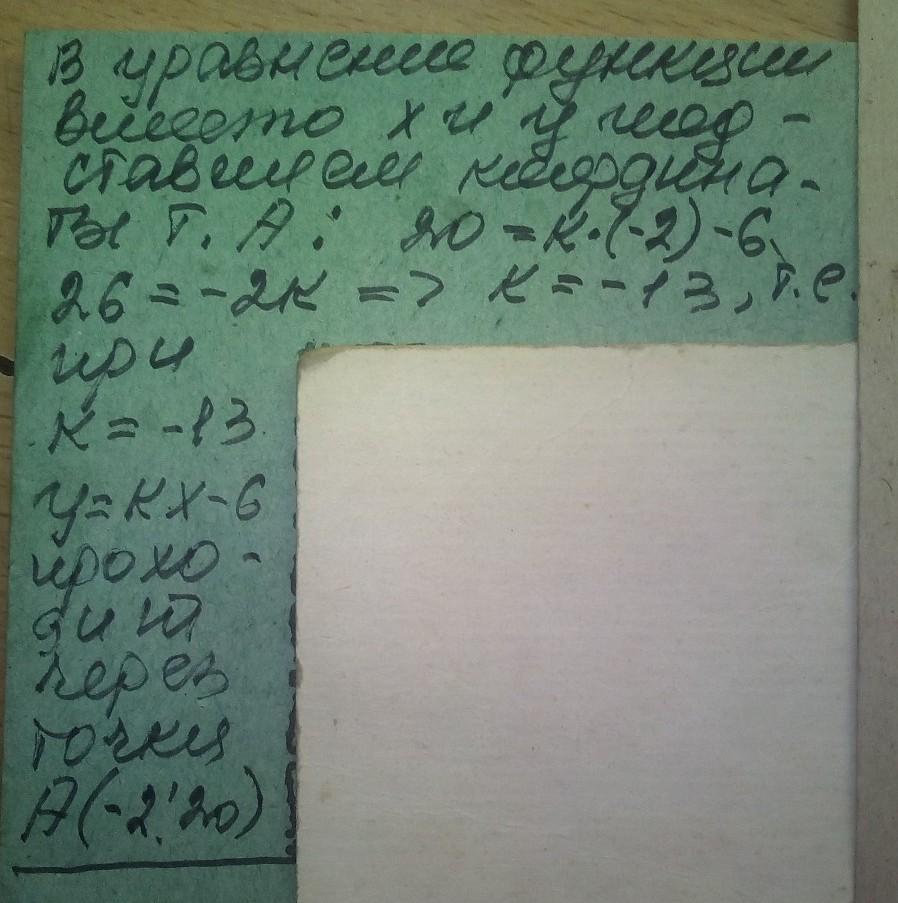 В уравнение функции
вместо х и у под-
ставляем координа-
ты т. А: 20 = к·(-2)-6,
26 = -2к => к = -13, т.е.
при
к = -13
у=кх-6
прохо-
дит
через
точку
А(-2; 20)